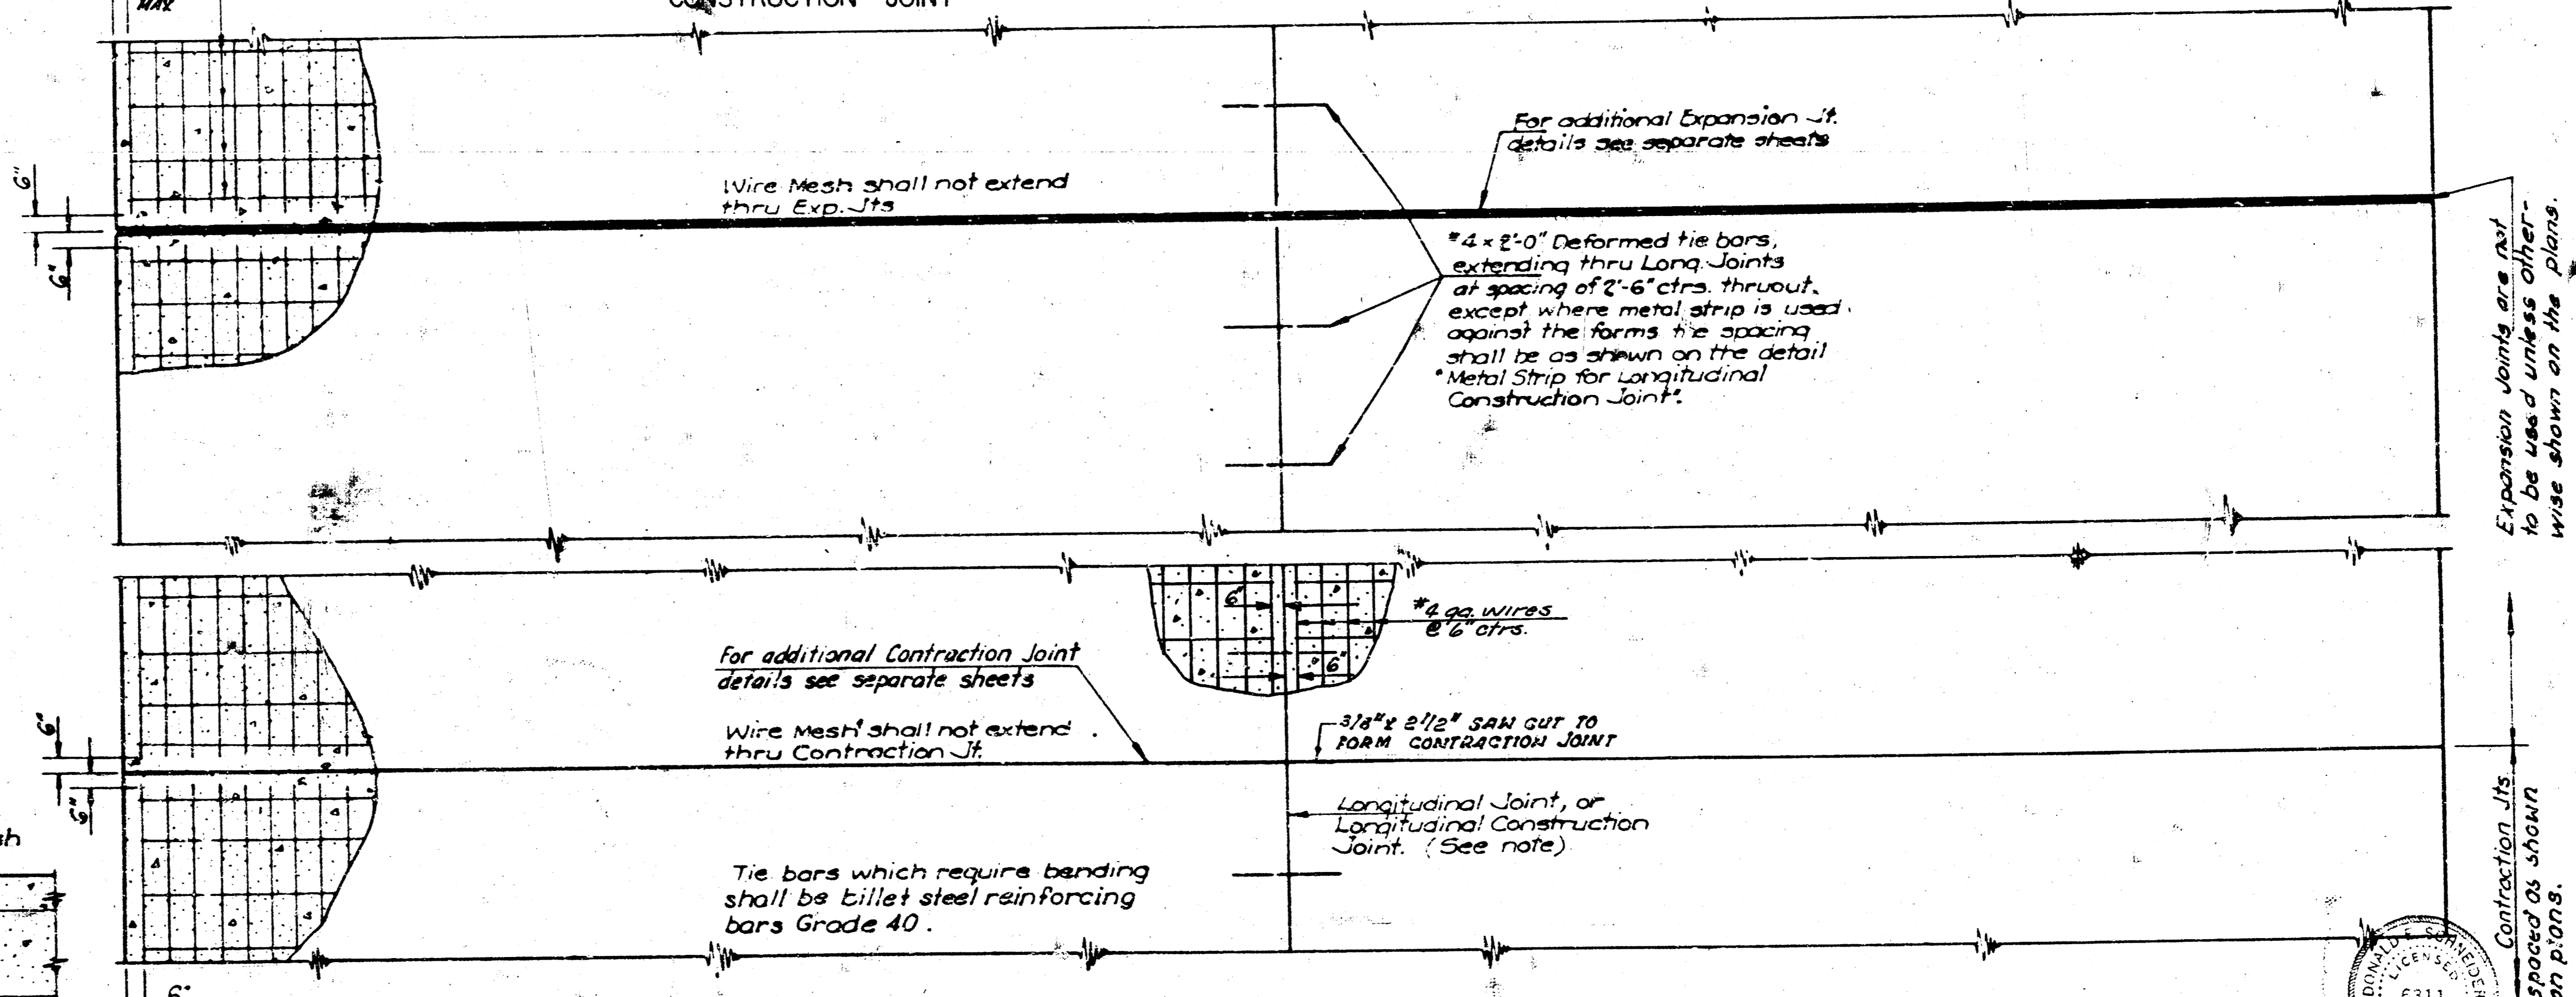 MAX
CONSTRUCTION JOINT
6"
6"
Wire Mesh shall not extend
thru Exp. Jts
For additional Expansion Jt.
details see separate sheets
#4 x 2'-0" Deformed tie bars,
extending thru Long. Joints
at spacing of 2'-6" ctrs. thruout.
except where metal strip is used
against the forms the spacing
shall be as shown on the detail
"Metal Strip for Longitudinal
Construction Joint".
Expansion Joints are not
to be used unless other-
wise shown on the plans.
6"
#4 ga. wires
@ 6" ctrs.
6"
For additional Contraction Joint
details see separate sheets
Wire Mesh shall not extend
thru Contraction Jt.
3/8" x 2 1/2" SAW CUT TO
FORM CONTRACTION JOINT
6"
6"
Longitudinal Joint, or
Longitudinal Construction
Joint. (See note)
Tie bars which require bending
shall be billet steel reinforcing
bars Grade 40.
Contraction Jts
spaced as shown
on plans.
6"
DONALD E. SCHNEIDER
LICENSED
6311